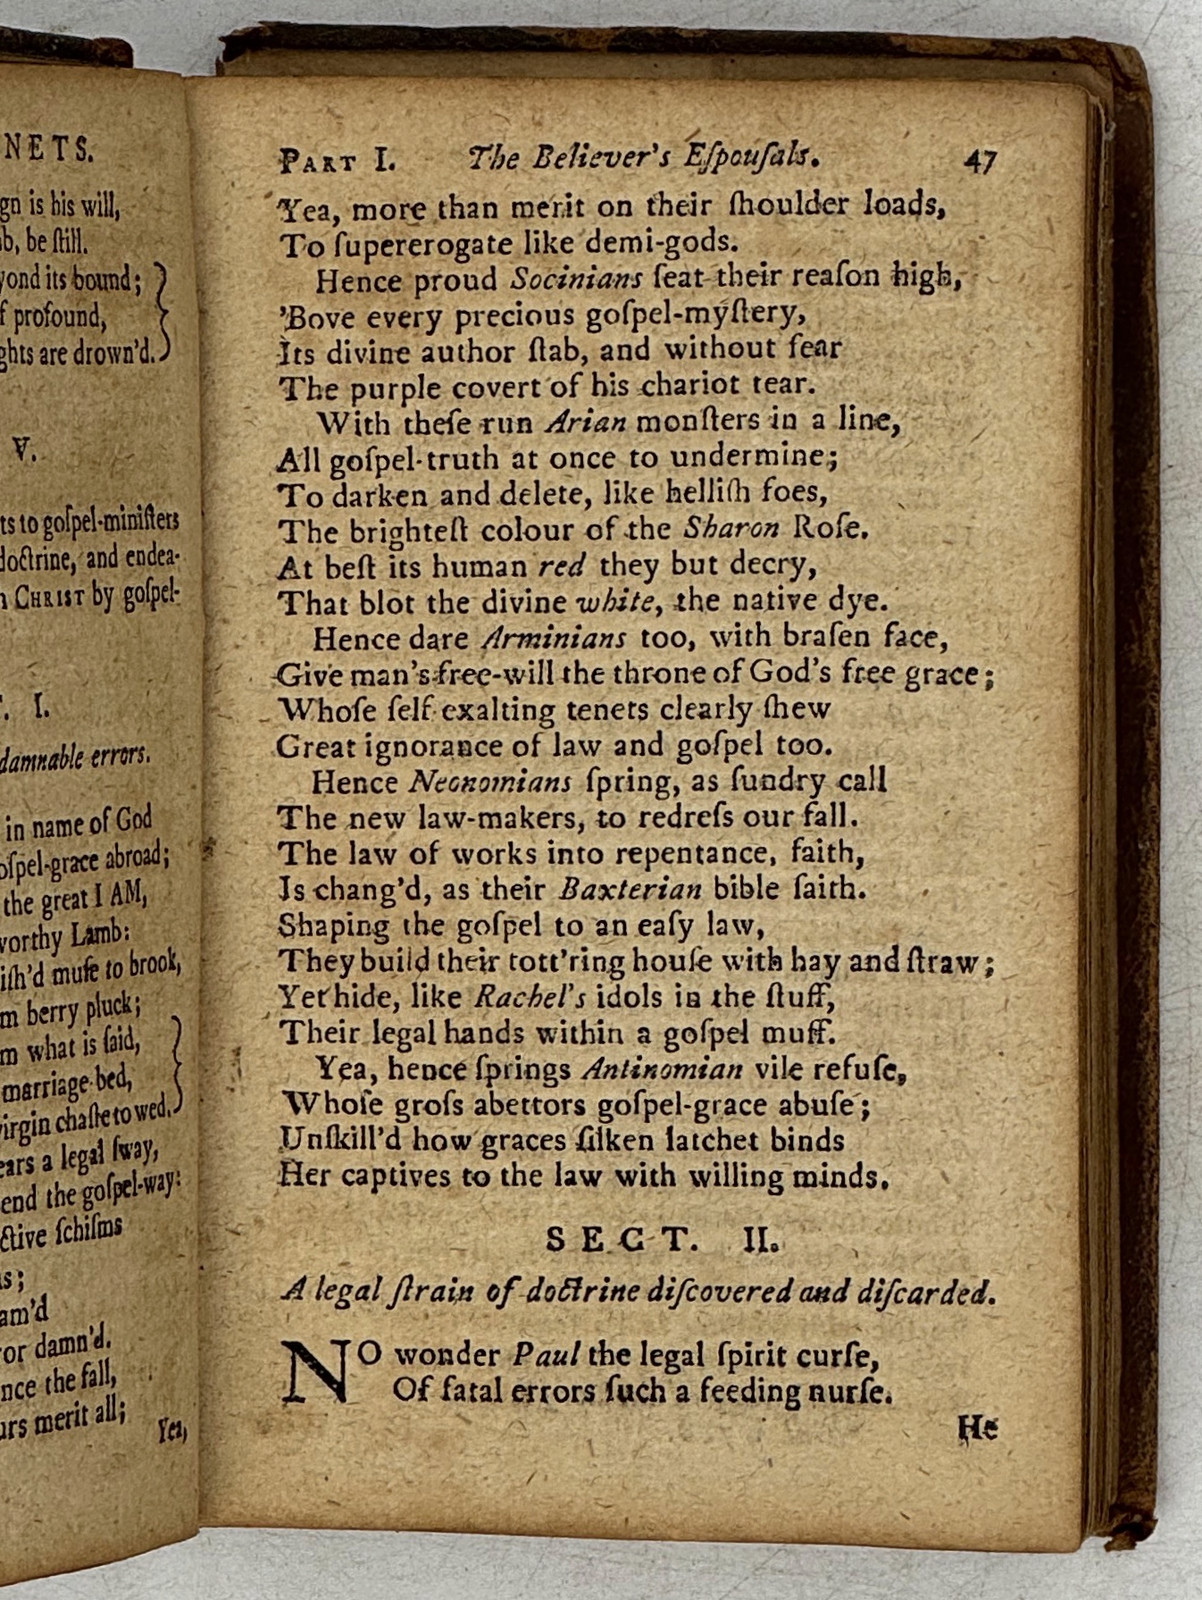 NETS.
gn is his will,
b, be ſtill.
yond its bound;
f profound,
ghts are drown'd.
V.
ts to goſpel-miniſters
doctrine, and endea-
CHRIST by goſpel-
I.
damnable errors.
in name of God
oſpel-grace abroad;
the great I AM,
worthy Lamb:
iſh'd muſe to brook,
m berry pluck;
m what is ſaid,
marriage-bed,
virgin chaſte to wed.
ears a legal ſway,
end the goſpel-way:
ctive ſchiſms
s;
am'd
or damn'd.
nce the fall,
urs merit all;
Yea,
PART I. The Believer's Eſpouſals. 47
Yea, more than merit on their ſhoulder loads,
To ſupererogate like demi-gods.
Hence proud Socinians ſeat their reaſon high,
'Bove every precious goſpel-myſtery,
Its divine author ſtab, and without fear
The purple covert of his chariot tear.
With theſe run Arian monſters in a line,
All goſpel-truth at once to undermine;
To darken and delete, like helliſh foes,
The brighteſt colour of the Sharon Roſe.
At beſt its human red they but decry,
That blot the divine white, the native dye.
Hence dare Arminians too, with braſen face,
Give man's free-will the throne of God's free grace;
Whoſe ſelf-exalting tenets clearly ſhew
Great ignorance of law and goſpel too.
Hence Neonomians ſpring, as ſundry call
The new law-makers, to redreſs our fall.
The law of works into repentance, faith,
Is chang'd, as their Baxterian bible ſaith.
Shaping the goſpel to an eaſy law,
They build their tott'ring houſe with hay and ſtraw;
Yet hide, like Rachel's idols in the ſtuff,
Their legal hands within a goſpel muff.
Yea, hence ſprings Antinomian vile refuſe,
Whoſe groſs abettors goſpel-grace abuſe;
Unſkill'd how graces ſilken latchet binds
Her captives to the law with willing minds.
SECT. II.
A legal ſtrain of doctrine diſcovered and diſcarded.
NO wonder Paul the legal ſpirit curſe,
Of fatal errors ſuch a feeding nurſe.
He